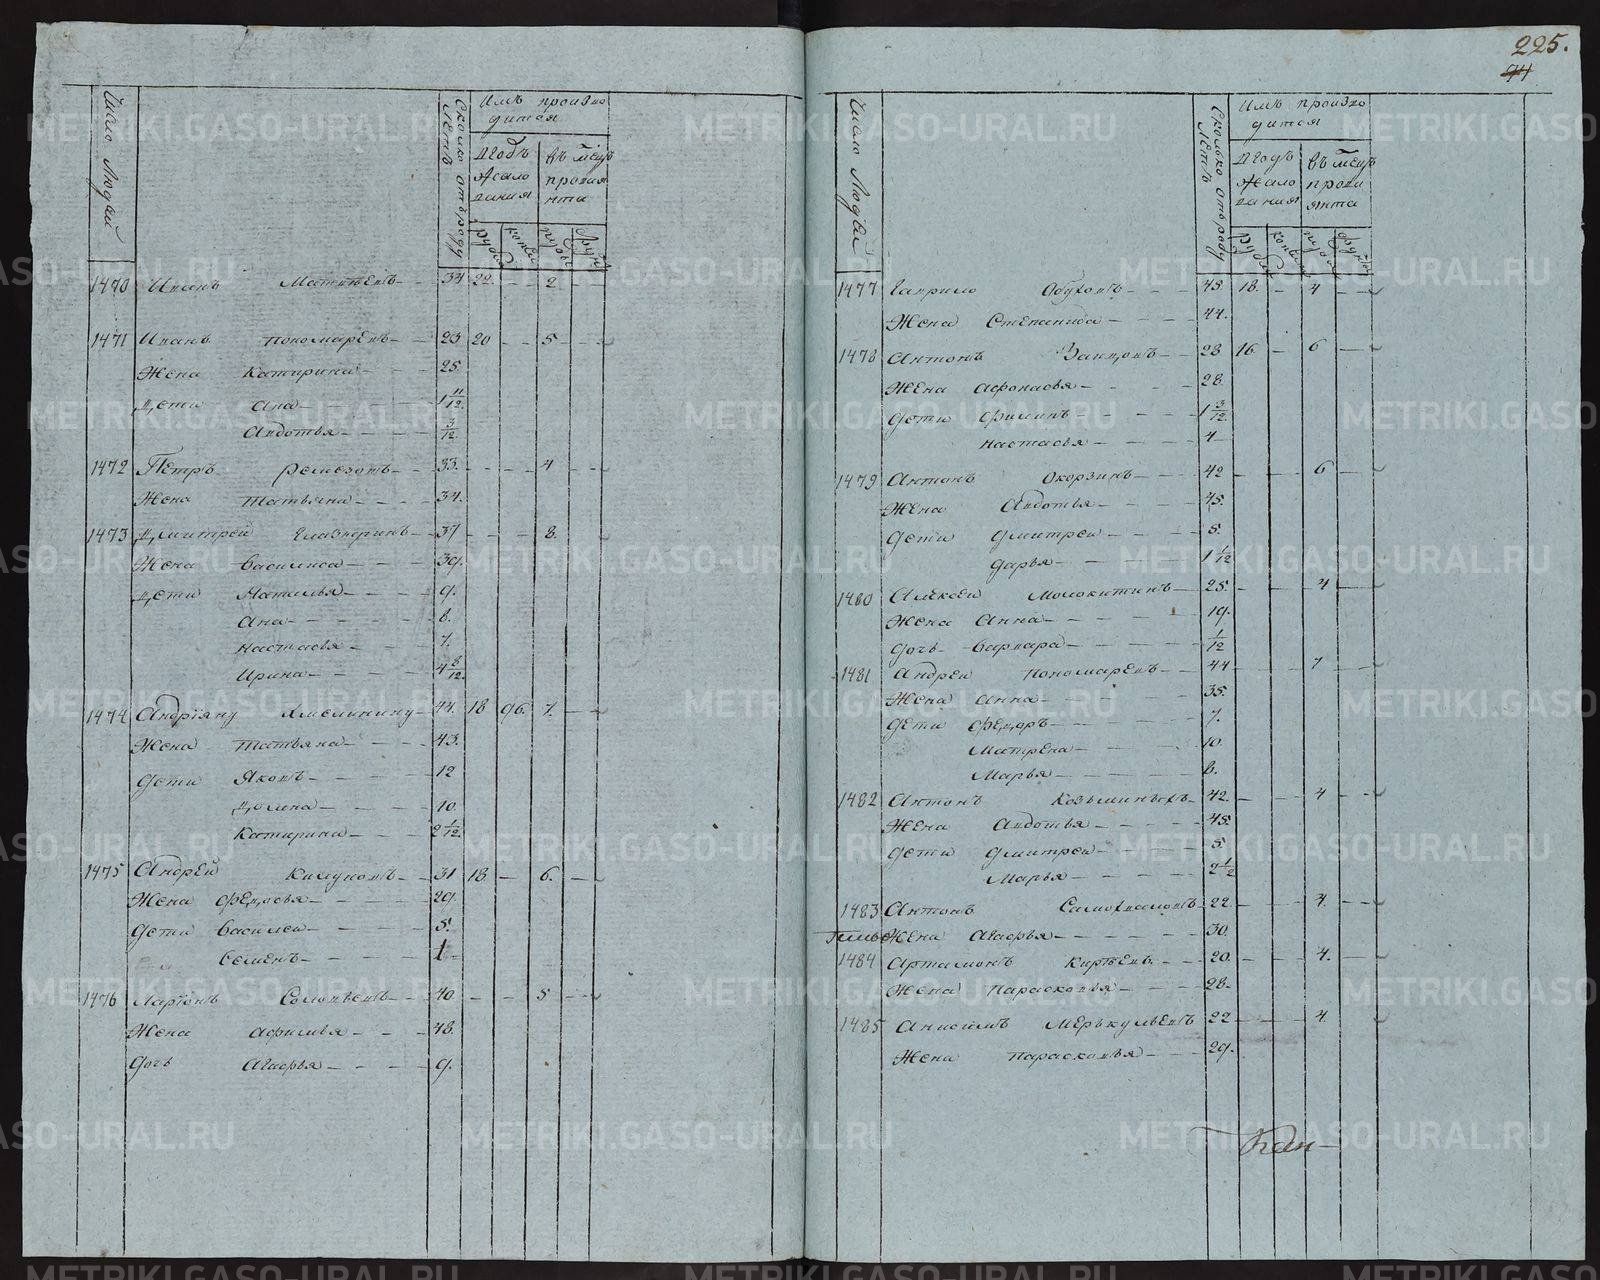 225.
Число Людей
Сколко отъ роду Летъ
Имъ произво
дится
Вгодъ
Жало
вания
въ мецъ
провиа
нта
рубли
копеи
пуды
фунты
1470 Иванъ Матвѣевъ 34 22 2
1471 Иванъ Пономаревъ 23 20 5
Жена Катирина 25
Дети Ана 1 11/12
Авдотья 3/12
1472 Петръ Ремезовъ 33 4
Жена Татьяна 34
1473 Дмитрей Елазнеринъ 37 8
Жена Василиса 39
Дети Наталья 9
Ана 8
Настасья 7
Ирина 4 8/12
1474 Андріяну Ямелинину 44 18 96 7
Жена Татьяна 43
Дети Яковъ 12
Домна 10
Катирина 2 1/12
1475 Андрей 31 18 6
Жена Федосья 29
Дети Василеи 5
Семенъ 1
1476 Ларіонъ Соловьевъ 40 5
Жена Афимья 48
Дочь Агафья 9
Число Людей
Сколько отъ роду Летъ
Имъ произво
дится
Вгодъ
Жало
вания
въ мецъ
прови
янта
рубли
копеи
пуды
фунты
1477 Гаврило Обуховъ 45 18 4
Жена Степанида 44
1478 Антонъ Заицовъ 28 16 6
Жена Афонасья 28
Дети Филипъ 1 3/12
Настасья 4
1479 Антонъ Окорзинъ 42 6
Жена Авдотья 45
Дети Дмитреи 5
Дарья 1 1/12
1480 Алексеи Молокитинъ 25 4
Жена Анна 19
Дочь Варвара 1/12
1481 Андреи Пономаревъ 44 7
Жена Анна 35
Дети Федоръ 7
Матрена 10
Марья 6
1482 Антонъ Козьминыхъ 42 4
Жена Авдотья 45
Дети Дмитреи 5
Марья 2 1/2
1483 Антонъ Самохваловъ 22 4
Жена Агафья 30
1484 Артамонъ Киревъ 20 4
Жена Парасковья 28
1485 Анисимъ Меркульевъ 22 4
Жена Парасковья 29
METRIKI.GASO-URAL.RU